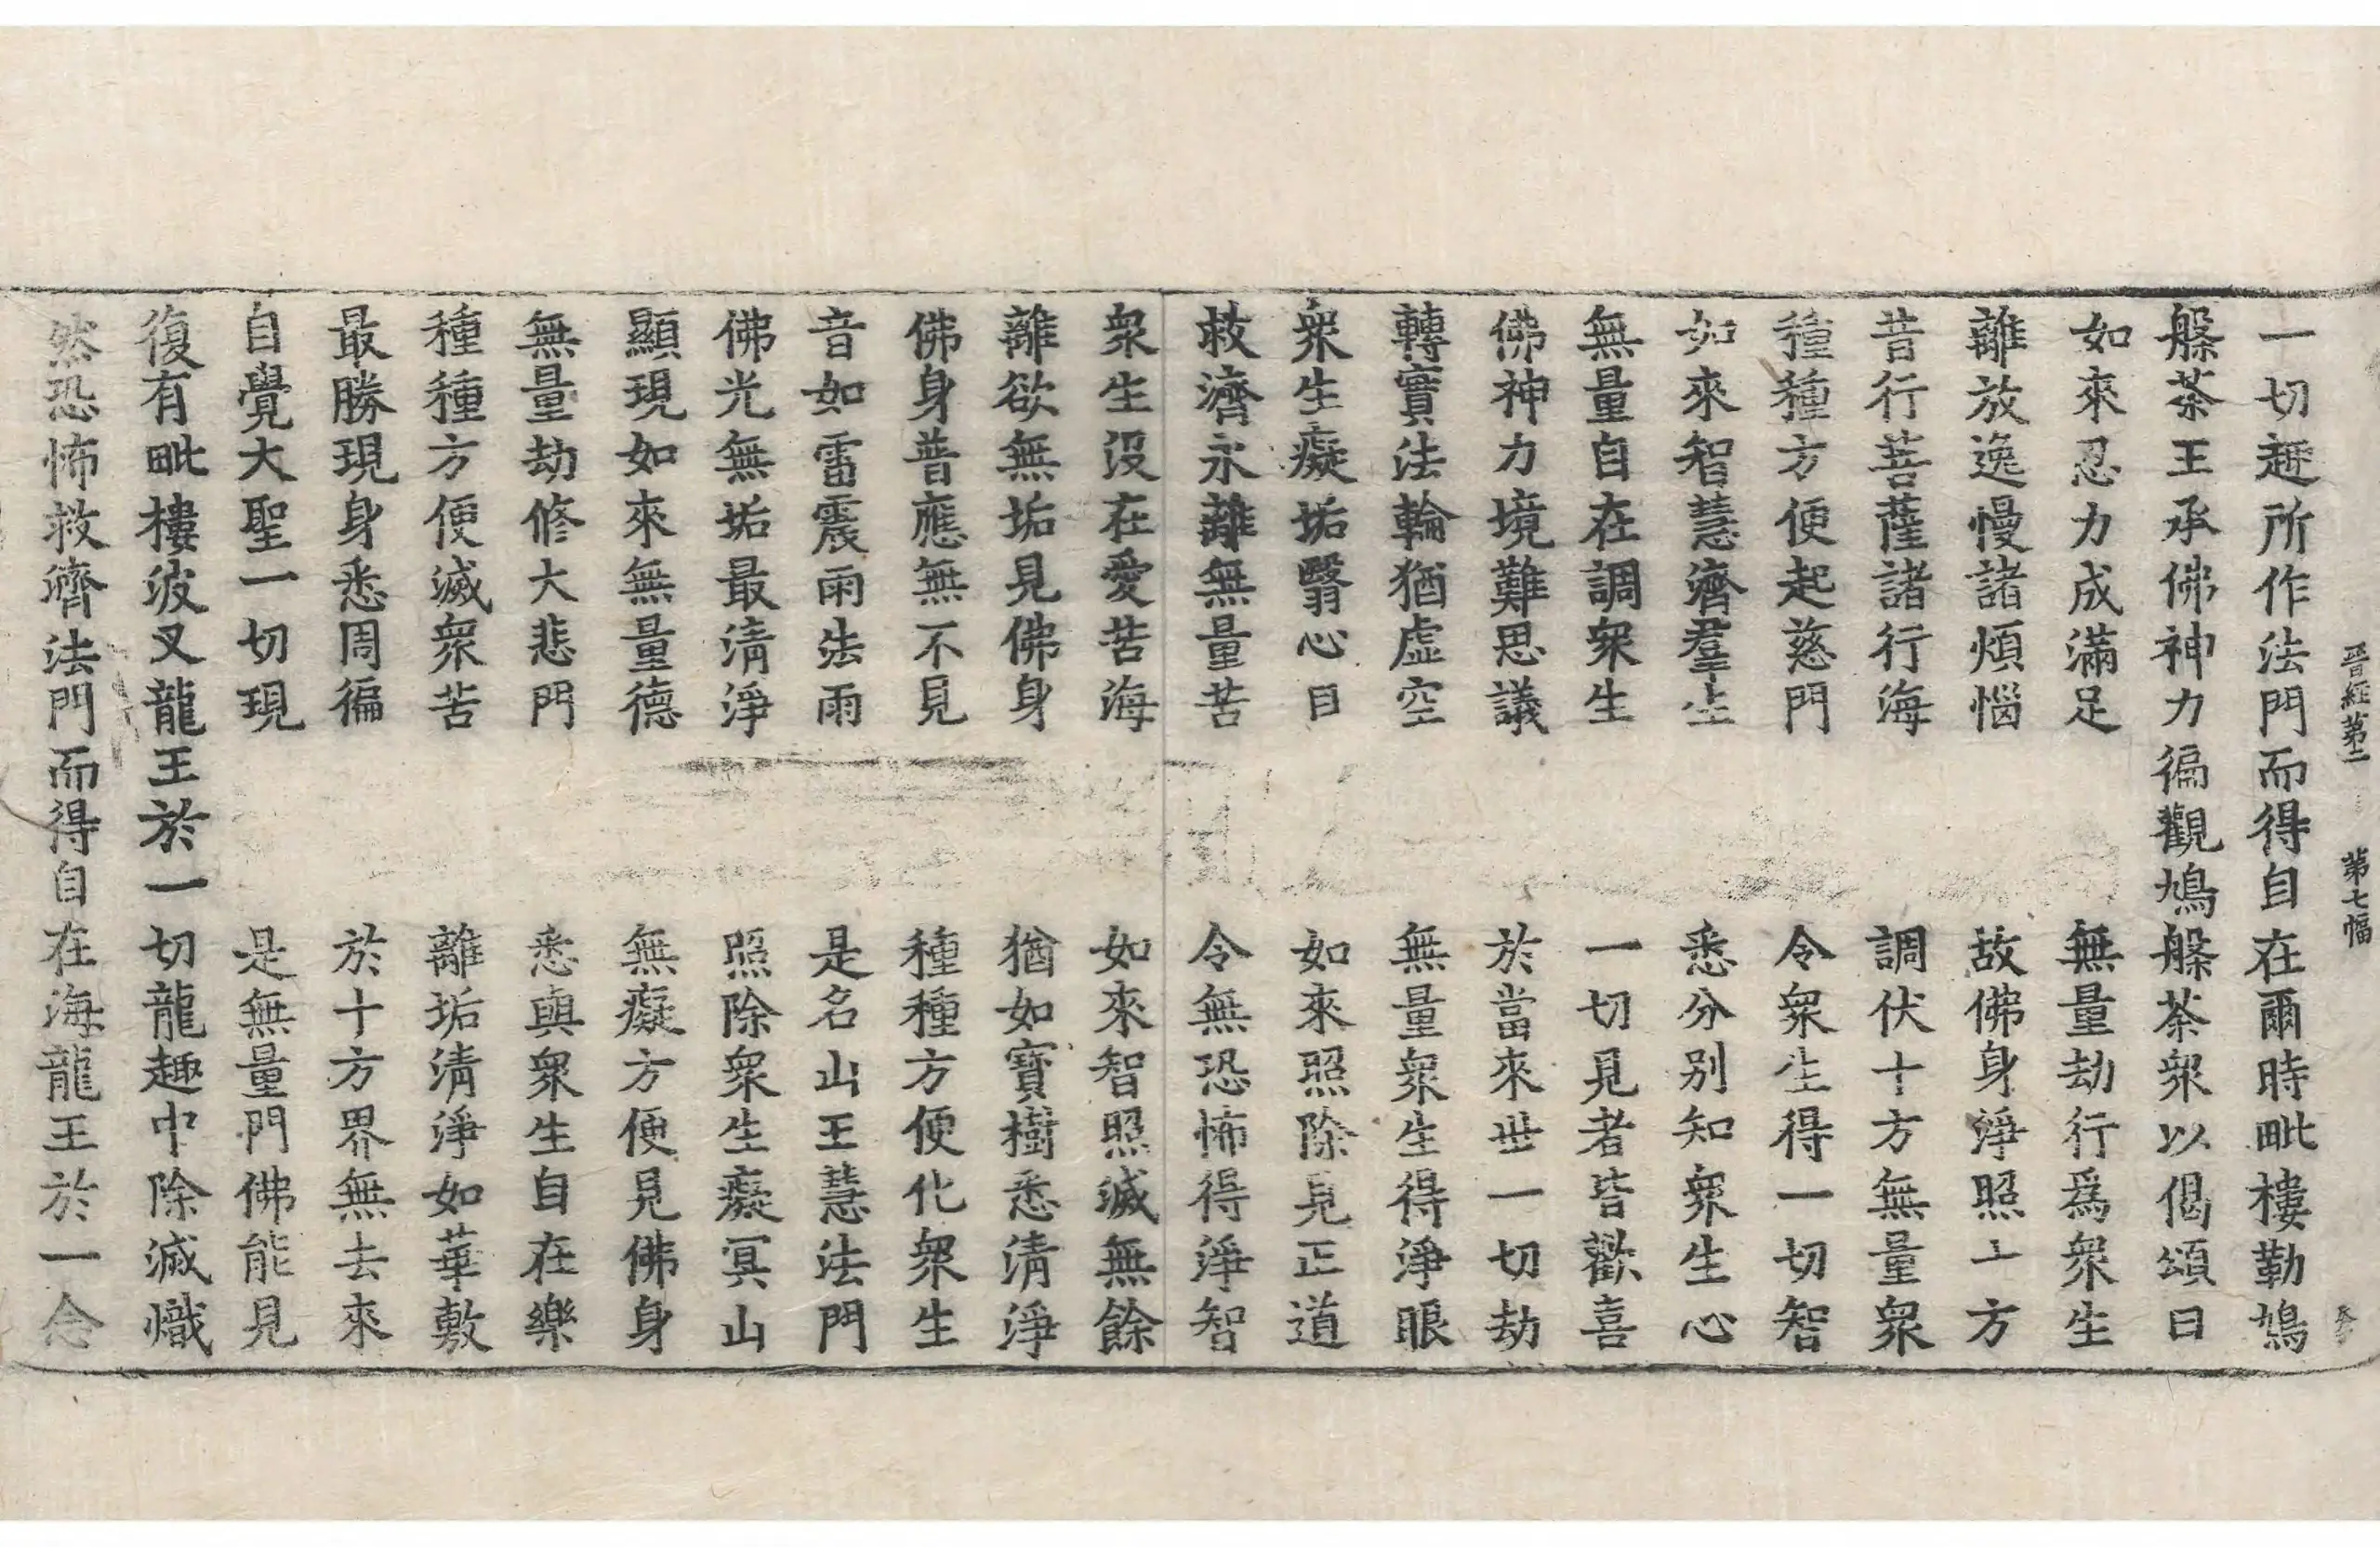 晉經第二　第七幅
一切趣所作法門而得自在爾時毗樓勒鳩
槃茶王承佛神力徧觀鳩槃茶衆以偈頌曰
如來忍力成滿足　無量劫行爲衆生
離放逸慢諸煩惱　故佛身淨照十方
昔行菩薩諸行海　調伏十方無量衆
種種方便起慈門　令衆生得一切智
如來智慧濟羣生　悉分別知衆生心
無量自在調衆生　一切見者皆歡喜
佛神力境難思議　於當來世一切劫
轉實法輪猶虛空　無量衆生得淨眼
衆生癡垢翳心目　如來照除見正道
救濟永離無量苦　令無恐怖得淨智
衆生沒在愛苦海　如來智照滅無餘
離欲無垢見佛身　猶如寶樹悉清淨
佛身普應無不見　種種方便化衆生
音如雷震雨法雨　是名山王慧法門
佛光無垢最清淨　照除衆生癡冥山
顯現如來無量德　無癡方便見佛身
無量劫修大悲門　悉與衆生自在樂
種種方便滅衆苦　離垢清淨如華敷
最勝現身悉周徧　於十方界無去來
自覺大聖一切現　是無量門佛能見
復有毗樓波叉龍王於一切龍趣中除滅熾
然恐怖救濟法門而得自在海龍王於一念